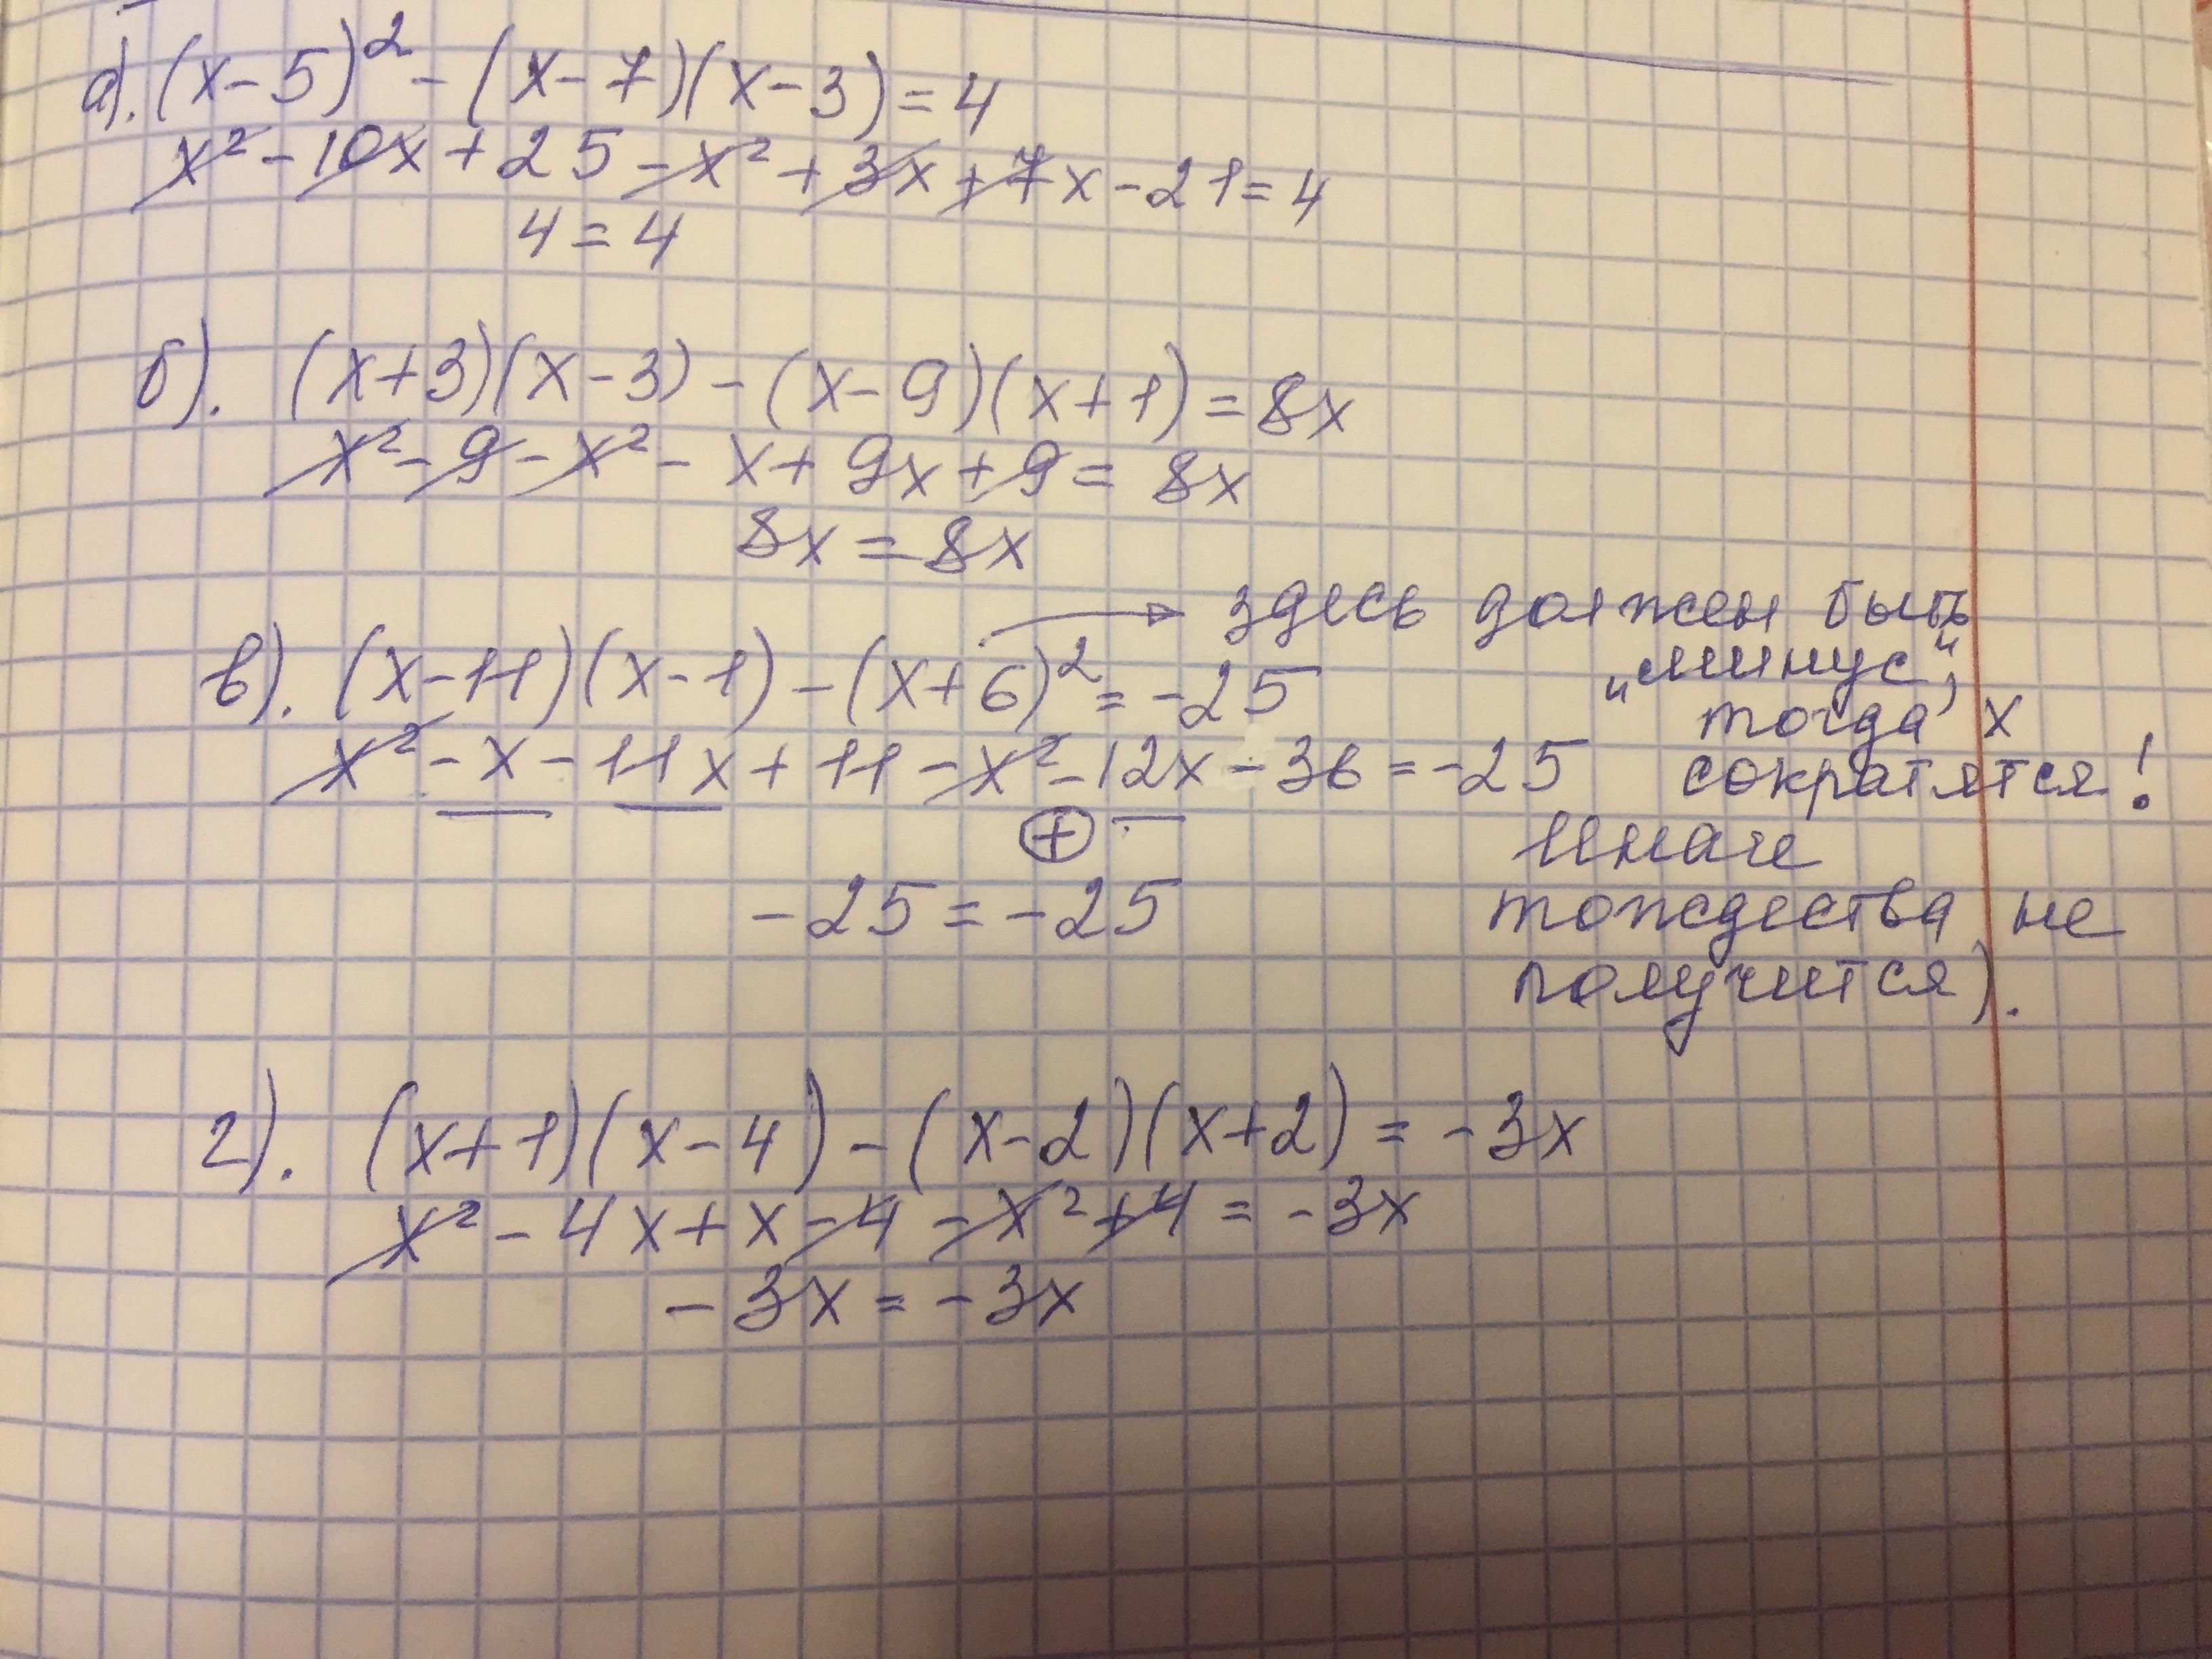 а). (x-5)² - (x-7)(x-3) = 4
x² - 10x + 25 - x² + 3x + 7x - 21 = 4
4 = 4
б). (x+3)(x-3) - (x-9)(x+1) = 8x
x² - 9 - x² - x + 9x + 9 = 8x
8x = 8x
→ здесь должен быть
"минус",
тогда x
сократятся!
Иначе
тождества не
получится).
в). (x-11)(x-1) - (x+6)² = -25
x² - x - 11x + 11 - x² - 12x - 36 = -25
+
-25 = -25
г). (x+1)(x-4) - (x-2)(x+2) = -3x
x² - 4x + x - 4 - x² + 4 = -3x
-3x = -3x